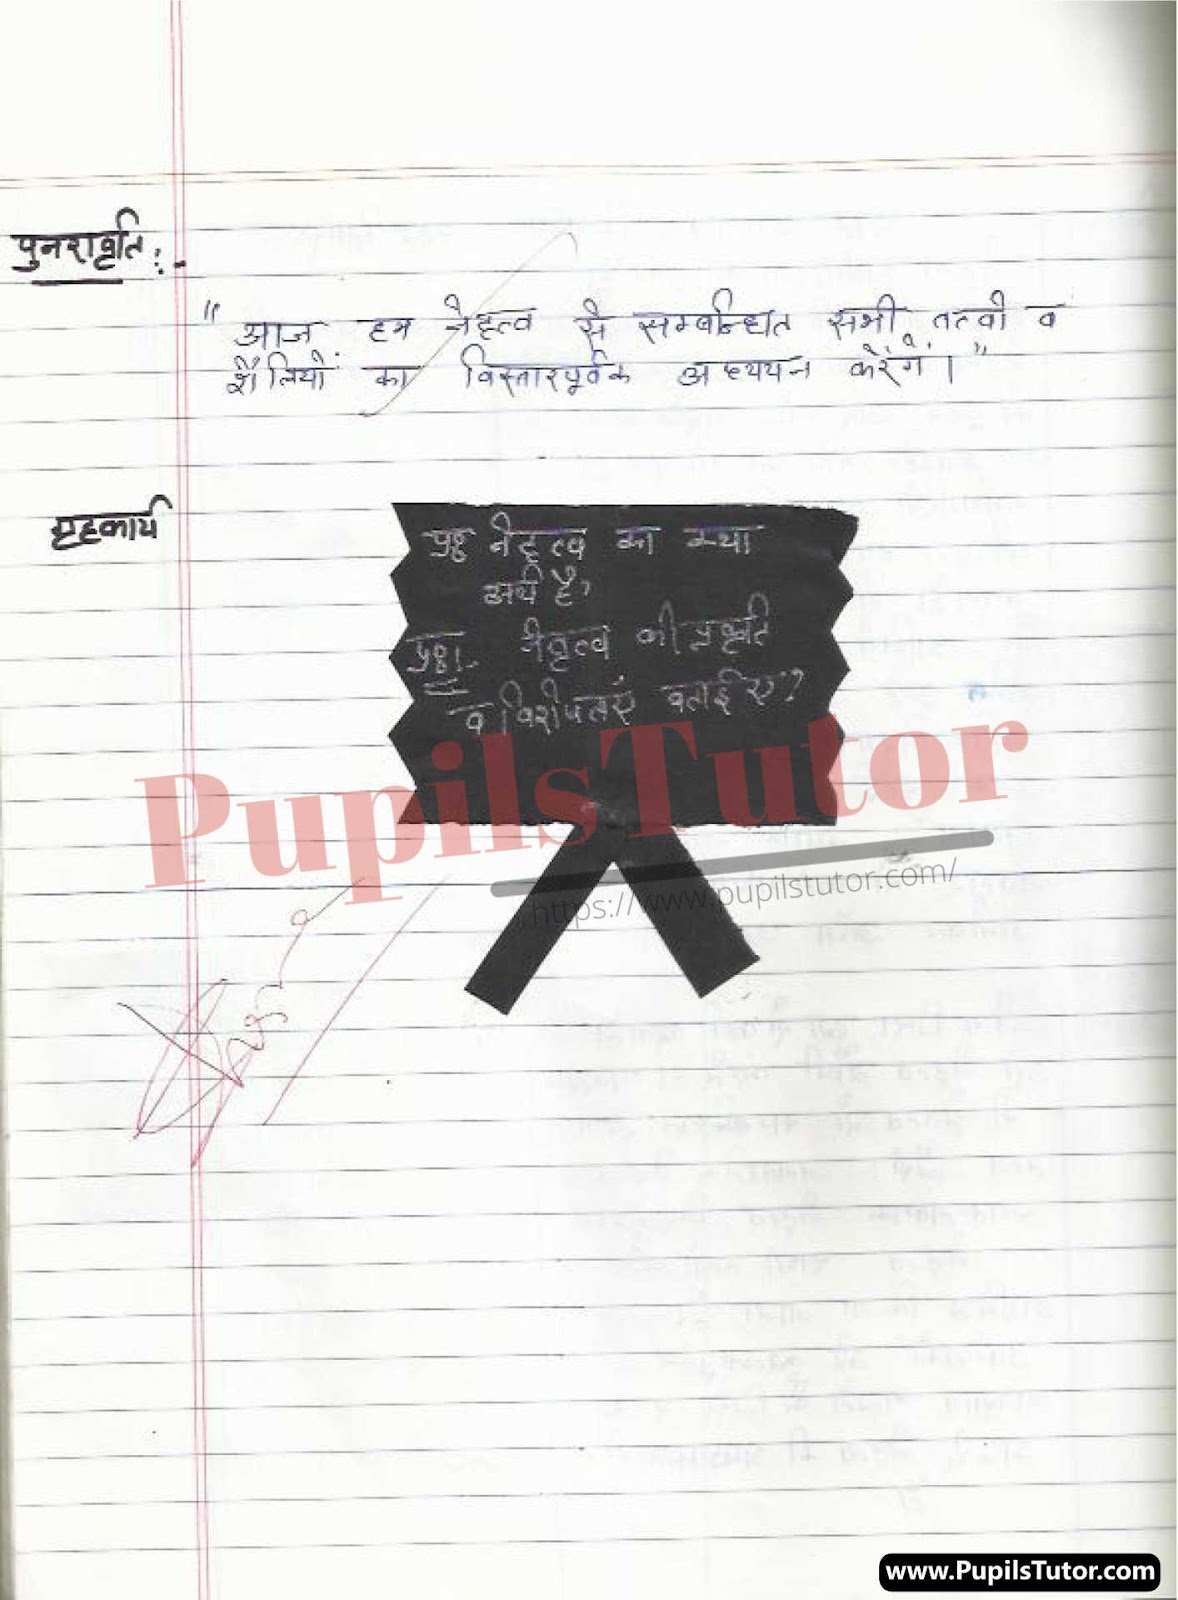 पुनरावृति :-
" आज हम नेतृत्व से सम्बन्धित सभी तत्वो व
शैलियों का विस्तारपूर्वक अध्ययन करेंगे। "
ग्रहकार्य
नेतृत्व का क्या
अर्थ है,
नेतृत्व की प्रकृति
व विशेषताएं बताईए?
PupilsTutor
https://www.pupilstutor.com/
www.PupilsTutor.com